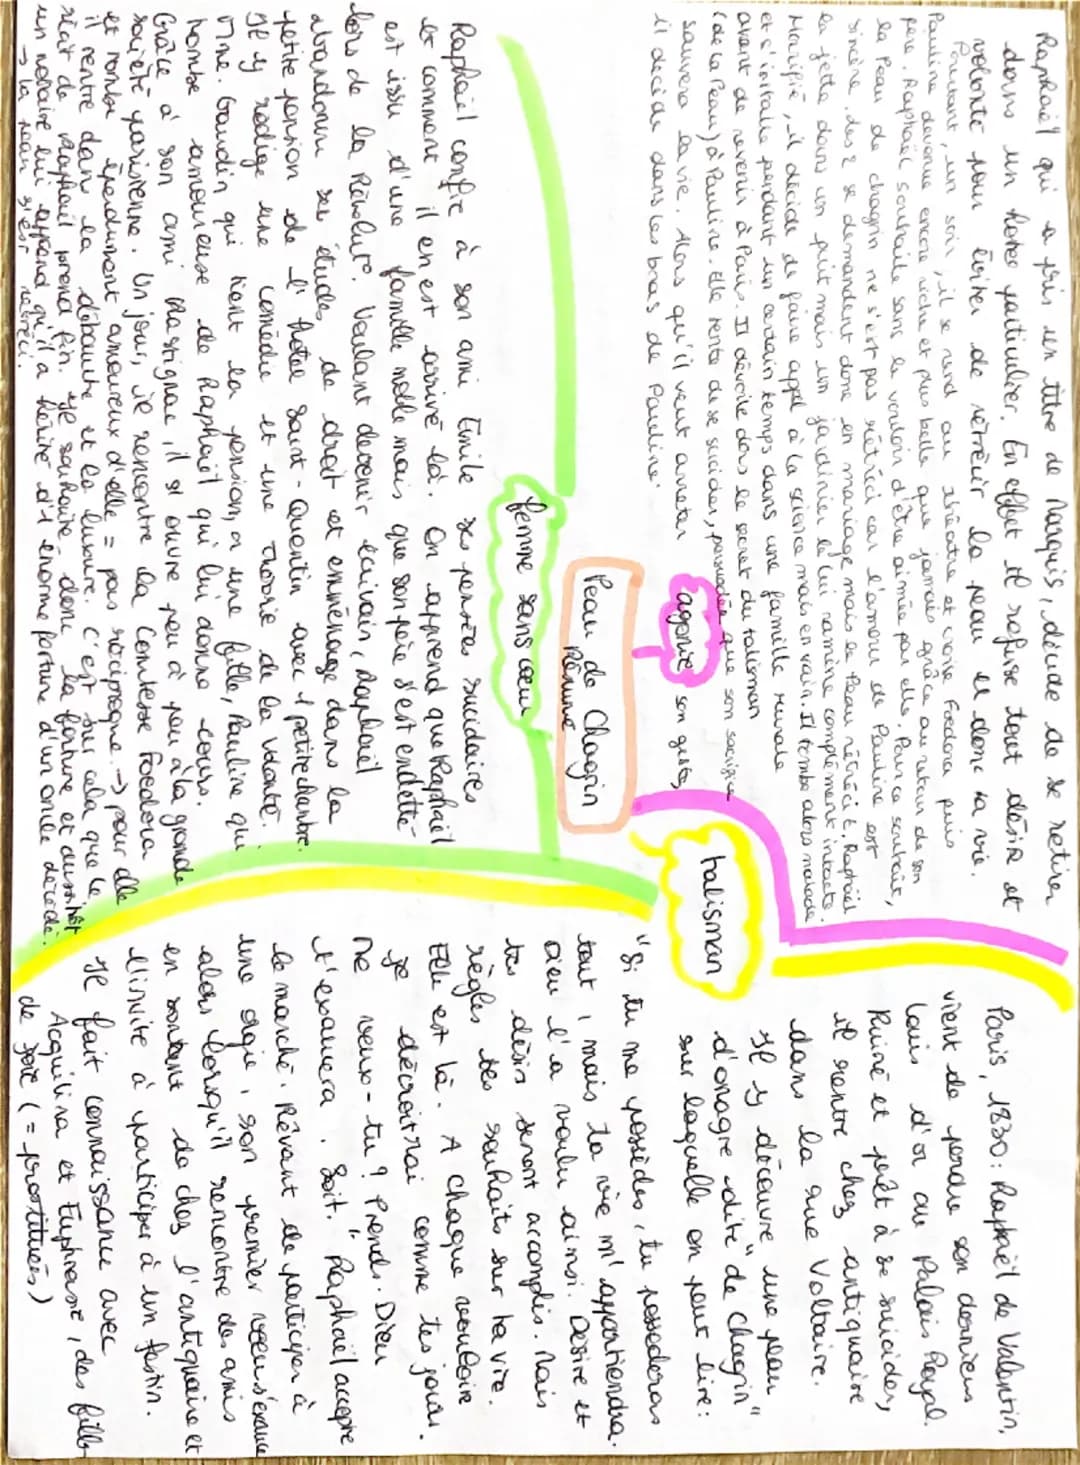 Peau de Chagrin
Résumé
talisman
Paris, 1830 : Raphaël de Valentin,
vient de perdre son derniers
louis d'or au Palais Royal.
Ruiné et prêt à se suicider,
il rentre chez l'antiquaire
dans la rue Voltaire.
Il y découvre une peau
d'onagre dite "de chagrin"
sur laquelle on peut lire :
"Si tu me possèdes, tu possèderas
tout, mais ta vie m'appartiendra.
Dieu l'a voulu ainsi. Désire et
tes désirs seront accomplis. Mais
règles tes souhaits sur ta vie.
Elle est là. A chaque vouloir
je décroitrai comme tes jours.
Me veux-tu ? Prends. Dieu
t'exaucera. Soit." Raphaël accepte
le marché. Rêvant de participer à
une orgie, son premier voeu s'éxauce
alors lorsqu'il rencontre des amis
en sortant de chez l'antiquaire et
l'invite à participer à un festin.
Il fait connaissance avec
Acquilina et Euphrasie, des filles
de joie (= prostituées)
femme sans coeur
Raphaël confie à son ami Emile ses pensées suicidaires
et comment il en est arrivé là. On apprend que Raphaël
est issu d'une famille noble mais que son père s'est endetté
lors de la Révolut°. Voulant devenir écrivain, Raphaël
abandonne ses études de droit et emménage dans la
petite pension de l'hotel Saint-Quentin avec 1 petite chambre.
Il y rédige une comédie et une théorie de la volonté.
Mme. Gaudin qui tient la pension, a une fille, Pauline qui
tombe amoureuse de Raphaël qui lui donne cours.
Grâce à son ami Rastignac, il s'ouvre peu à peu à la grande
société parisienne. Un jour, il rencontre la Comtesse Foedora
et tombe éperdument amoureux d'elle = pas réciproque. → pour elle
il rentre dans la débauche et la luxure. C'est sur cela que le
récit de Raphaël prend fin. Il souhaite donc la fortune et aussitôt
un notaire lui apprend qu'il a hérité d'1 énorme fortune d'un oncle décédé.
→ la peau s'est rétréci.
agonie
Raphaël qui a pris un titre de Marquis, décide de se retirer
dans un hotel particulier. En effet il refuse tout désir et
volonté pour éviter de rétrécir la peau et donc sa vie.
Pourtant, un soir, il se rend au théâtre et croise Foedora puis
Pauline devenue encore riche et plus belle que jamais grâce au retour de son
père. Raphaël souhaite sans le vouloir d'être aimée par elle. Par ce souhait,
la Peau de chagrin ne s'est pas rétréci car l'amour de Pauline est
sincère. Les 2 se demandent donc en mariage mais la Peau rétrécit. Raphaël
la jette dans un puit mais un jardinier la lui ramène complètement intacte.
Horrifié, il décide de faire appel à la science mais en vain. Il tombe alors malade
et s'installe pendant un certain temps dans une famille rurale
avant de revenir à Paris. Il dévoile dans le secret du talisman
(de la Peau) à Pauline. Elle tente de se suicider, persuadée que son sacrifice
sauvera la vie. Alors qu'il veut arreter son geste,
il décède dans les bras de Pauline.